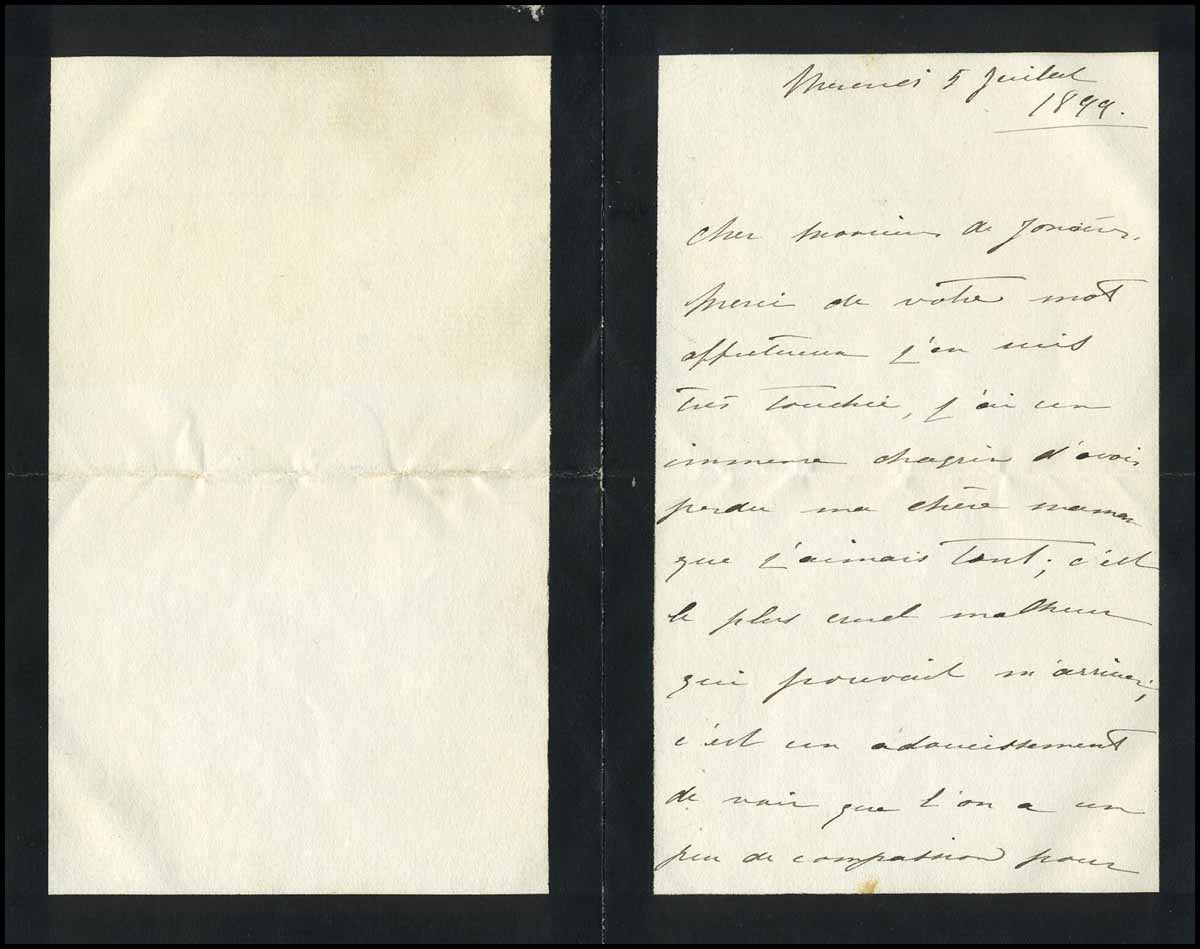 Mercredi 5 Juillet
1899.
cher Monsieur de
merci de votre mot
affectueux j'en suis
très touchée, j'ai un
immense chagrin d'avoir
perdu ma chère maman
que j'aimais tant; c'est
le plus cruel malheur
qui pouvait m'arriver;
c'est un adoucissement
de voir que l'on a un
peu de compassion pour